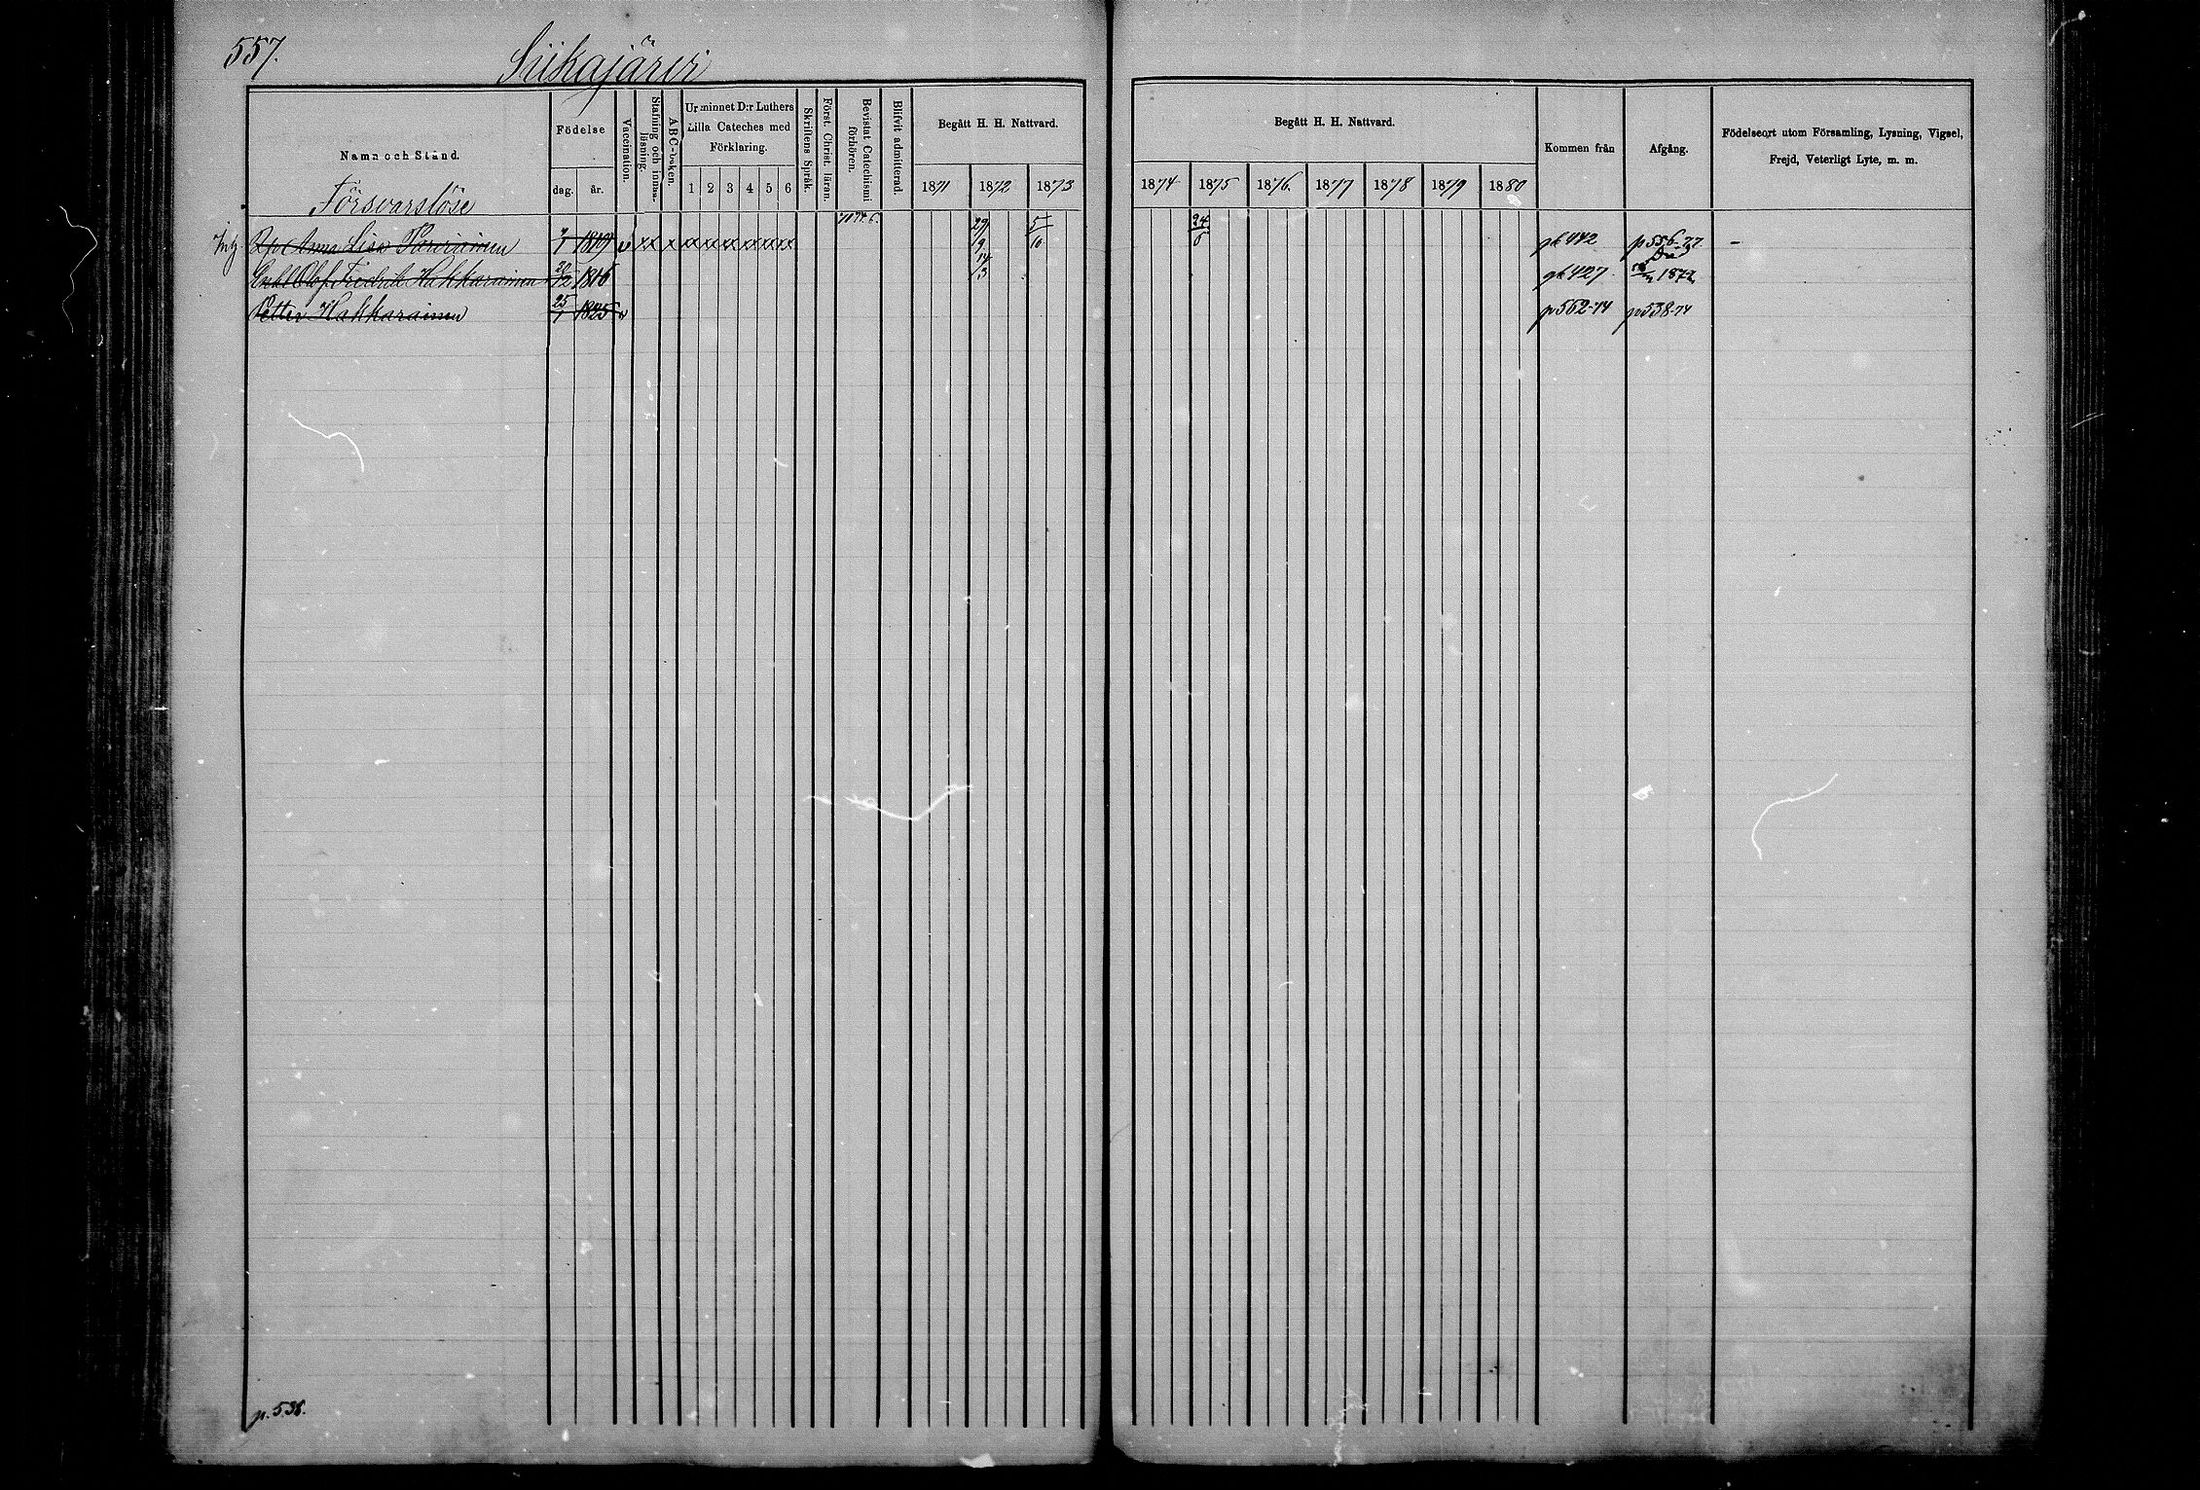 557.
Siikajärvi
Namn och Stånd.
Födelse
dag.
år.
Vaccination.
Stafning och innanläsning.
ABC-boken.
Ur minnet D:r Luthers
Lilla Cateches med
Förklaring.
1 2 3 4 5 6
Skriftens Språk.
Först. Christ. läran.
Bevistat Catechismi förhören.
Blifvit admitterad.
Begått H. H. Nattvard.
1871 1872 1873
Begått H. H. Nattvard.
1874 1875 1876 1877 1878 1879 1880
Kommen från
Afgång.
Födelseort utom Församling, Lysning, Vigsel,
Frejd, Veterligt Lyte, m. m.
Försvarslöse
Anna Lisa 1819 v xx x xxxxxx 29/9 5/10 24/5 442 p 556-77 –
Enkl Olof Fredrik Hakkarainen 1816 14/3 427 Död 1872
Petter Hakkarainen 25/1 1825 v p 562-74 p 538-74
p. 538.